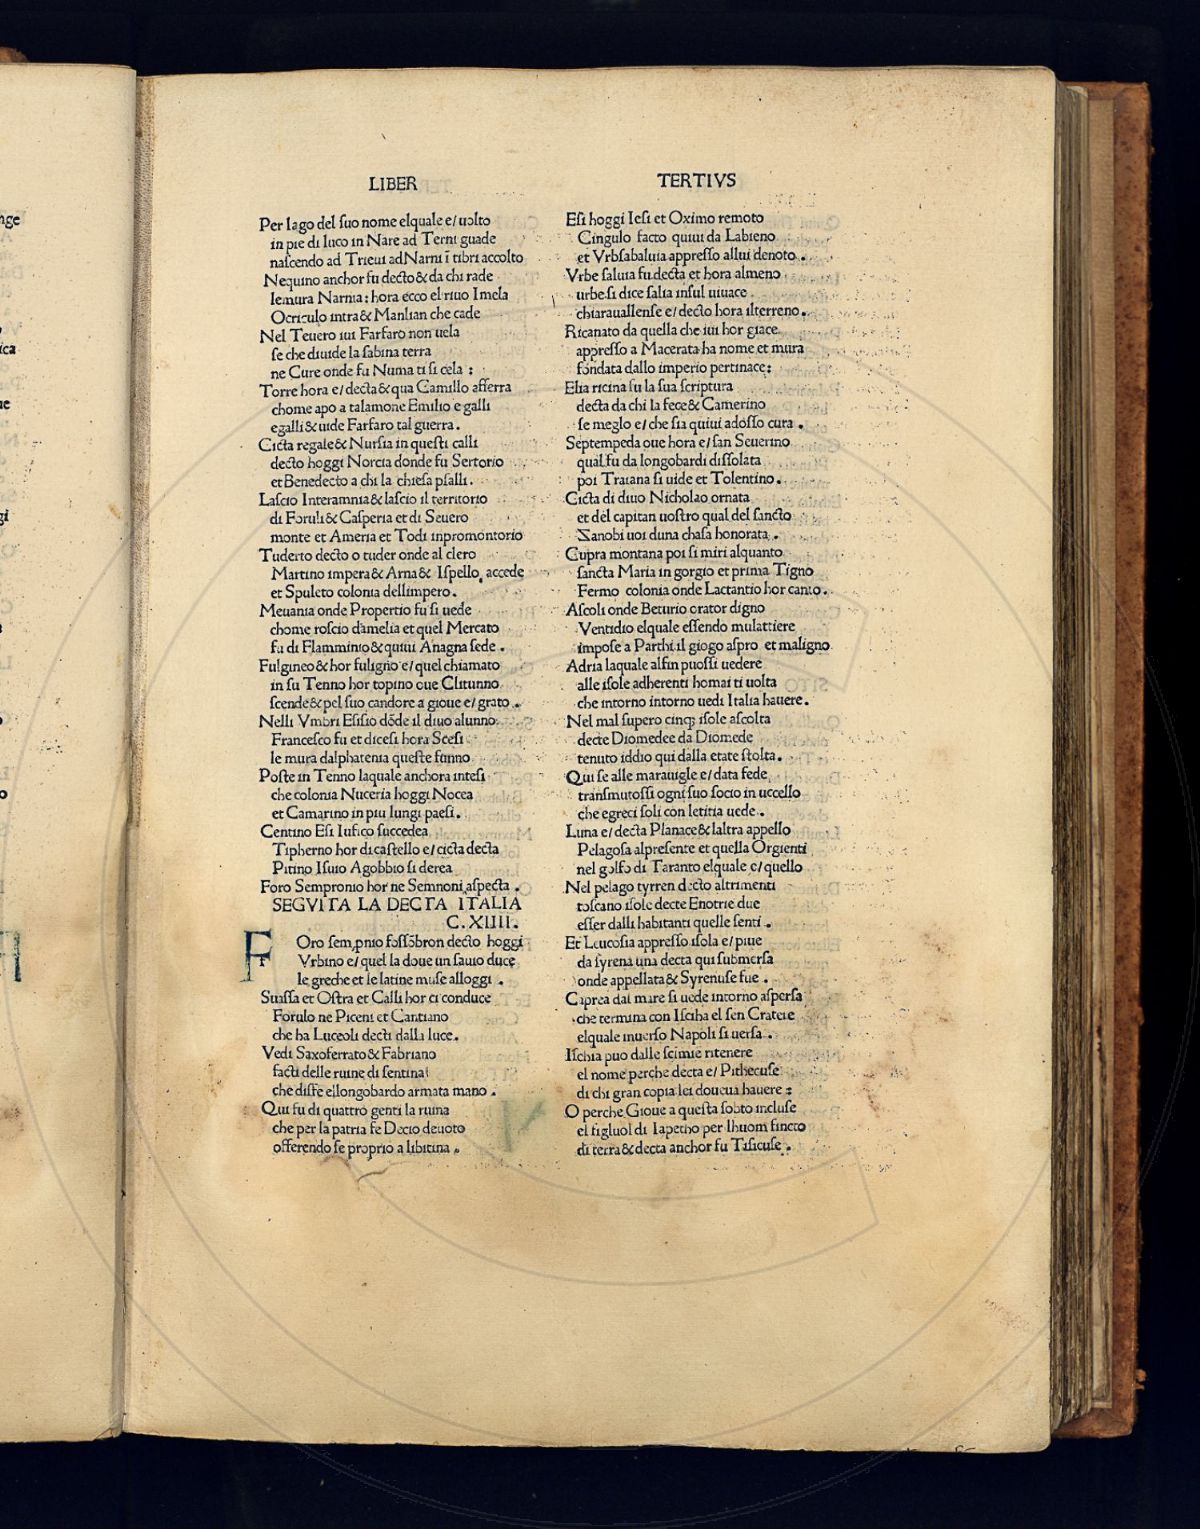 LIBER
Per lago del suo nome elquale e/ uolto
in pie di luco in Nare ad Terni guade
nascendo ad Trieui ad Narni ī tibri accolto
Nequino anchor fu decto & da chi rade
lemura Narnia: hora ecco el riuo Imela
Ocriculo intra & Manlian che cade
Nel Teuero iui Farfaro non uela
se che diuide la sabina terra
ne Cure onde fu Numa ti si cela :
Torre hora e/ decta & qua Camillo afferra
chome apo a talamone Emilio e galli
e galli & uide Farfaro tal guerra .
Cicta regale & Nursia in questi calli
decto hoggi Norcia donde fu Sertorio
et Benedecto a chi la chiesa psalli .
Lascio Interamnia & lascio il territorio
di Foruli & Casperia et di Seuero
monte et Ameria et Todi inpromontorio
Tuderto decto o tuder onde al clero
Martino impera & Arna & Ispello accede
et Spuleto colonia dellimpero .
Meuania onde Propertio fu si uede
chome roscio damelia et quel Mercato
fu di Flamminio & quiui Anagna sede .
Fulgineo & hor fuligno e/ quel chiamato
in su Tenno hor topino oue Clitunno
scende & pel suo candore a gioue e/ grato .
Nelli Vmbri Esisio dōde il diuo alunno
Francesco fu et dicesi hora Scesi
le mura dalphatenia queste funno
Poste in Tenno laquale anchora intesi
che colonia Nuceria hoggi Nocea
et Camarino in piu lungi paesi .
Centino Esi Iufico succedea
Tipherno hor di castello e/ cicta decta
Pitino Isuio Agobbio si derea
Foro Sempronio hor ne Semnoni aspecta .
SEGVITA LA DECTA ITALIA
C. XIIII.
F Oro sempnio fossōbron decto hoggi
Vrbino e/ quel la doue un sauio duce
le greche et le latine muse alloggi .
Suassa et Ostra et Calli hor ci conduce
Forulo ne Piceni et Cantiano
che ha Luceoli decti dalla luce .
Vedi Saxoferrato & Fabriano
facti delle ruine di sentina
che disfe ellongobardo armata mano .
Qui fu di quattro genti la ruina
che per la patria fe Decio deuoto
offerendo se proprio a libitina .
TERTIVS
Esi hoggi Iesi et Oximo remoto
Cingulo facto quiui da Labieno
et Vrbsabaluia appresso allui denoto .
Vrbe saluia fu decta et hora almeno
urbe si dice salia insul uiuace
chiarauallense e/ decto hora ilterreno .
Ricanato da quella che iui hor giace
appresso a Macerata ha nome et mura
fondata dallo imperio pertinace :
Elia ricina fu la sua scriptura
decta da chi la fece & Camerino
se meglo e/ che sia quiui adosso cura .
Septempeda oue hora e/ san Seuerino
qual fu da longobardi dissolata
poi Traiana si uide et Tolentino .
Cicta di diuo Nicholao ornata
et del capitan uostro qual del sancto
Zanobi uoi duna chasa honorata .
Cupra montana poi si miri alquanto
sancta Maria in gorgio et prima Tigno
Fermo colonia onde Lactantio hor canto .
Ascoli onde Beturio orator digno
Ventidio elquale essendo mulattiere
impose a Parthi il giogo aspro et maligno
Adria laquale alfin puossi uedere
alle isole adherenti homai ti uolta
che intorno intorno uedi Italia hauere .
Nel mal supero cinq; isole ascolta
decte Diomedee da Diomede
tenuto iddio qui dalla etate stolta .
Qui se alle marauigle e/ data fede
transmutossi ogni suo socio in uccello
che egreci soli con letitia uede .
Luna e/ decta Planace & laltra appello
Pelagosa alpresente et quella Orgienti
nel golfo di Taranto elquale e/ quello
Nel pelago tyrren decto altrimenti
toscano isole decte Enotrie due
esser dalli habitanti quelle senti .
Et Leucosia appresso isola e/ piue
da syrena una decta qui submersa
onde appellata & Syrenuse fue .
Caprea dal mare si uede intorno aspersa
che termina con Ischa el sen Cratere
elquale inuerso Napoli si uersa .
Ischia puo dalle scimie ritenere
el nome perche decta e/ Pithecuse
di chi gran copia lei doueua hauere :
O perche Gioue a questa sobto incluse
el figluol di Iapetho per lhuom fincto
di terra & decta anchor fu Tisicuse .